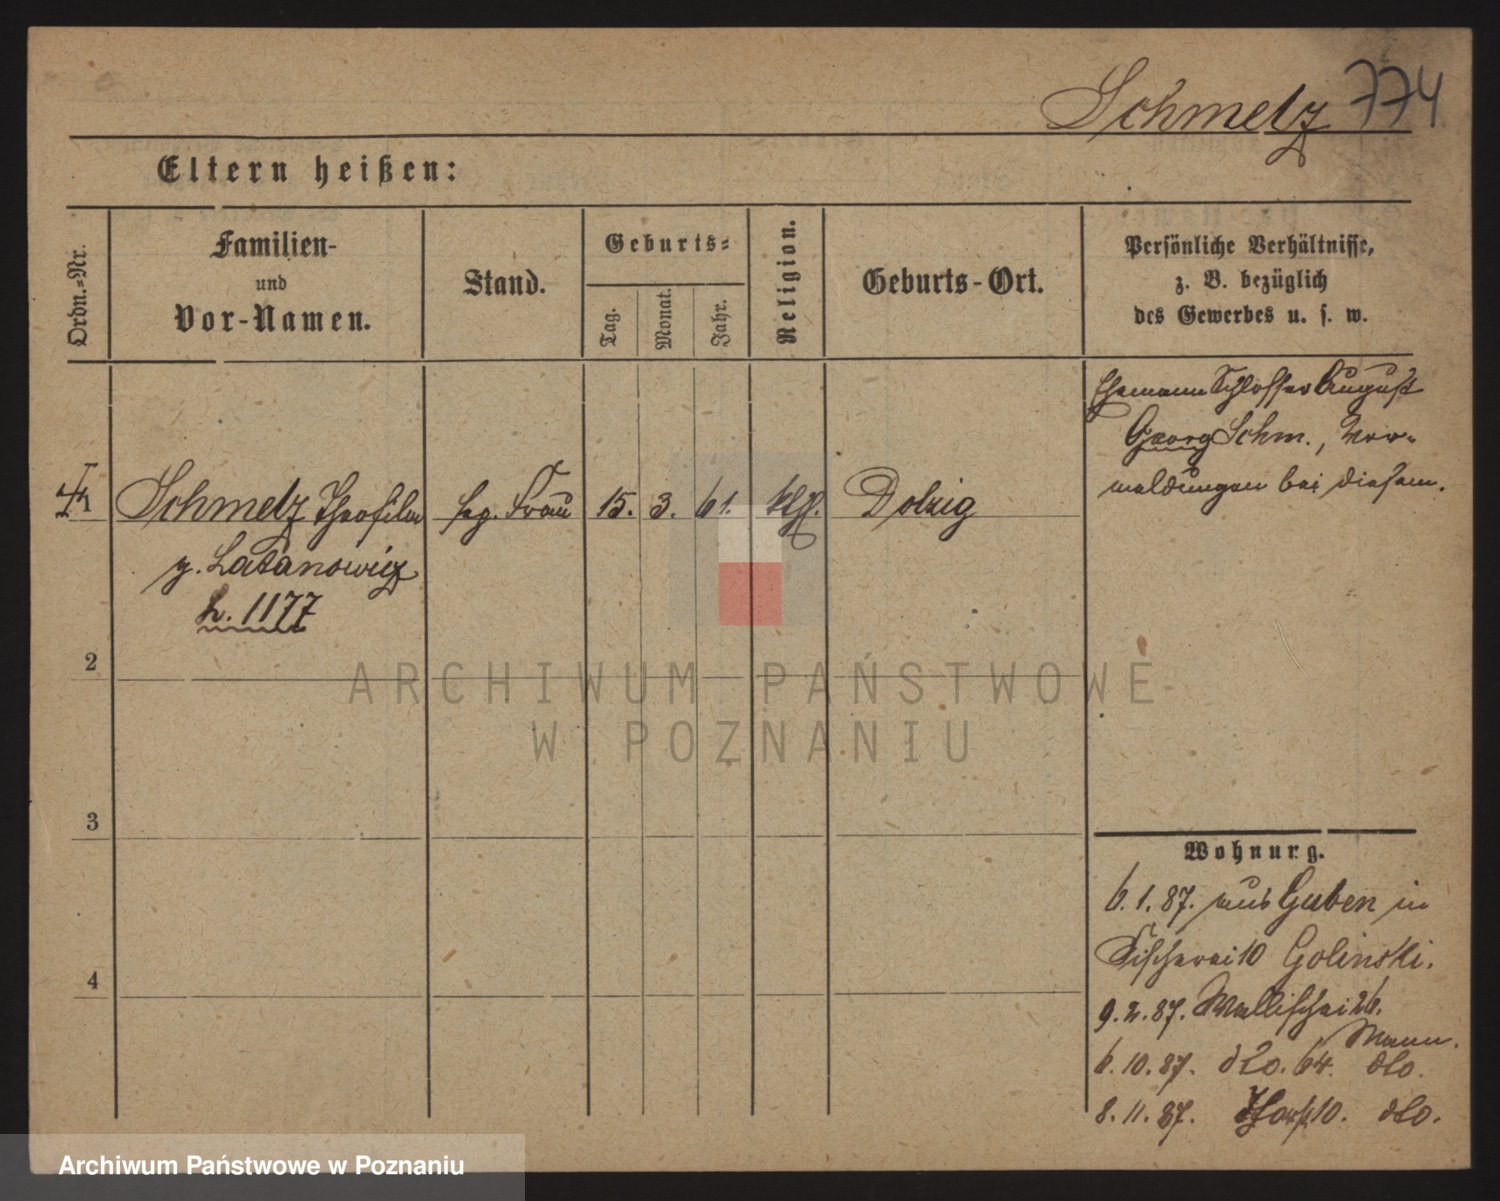 Schmelz 774
Eltern heißen:
Ordn.=Nr.
Familien-
und
Vor-Namen.
Stand.
Geburts=
Tag.
Monat.
Jahr.
Religion.
Geburts-Ort.
Persönliche Verhältnisse,
z. B. bezüglich
des Gewerbes u. s. w.
Ehemann Schlosser August
Georg Schm., Vor-
meldungen bei diesem.
Schmelz Theofila Frau 15. 3. 61. Dolzig
g. Latanowicz
L. 1177
2
3
4
Wohnung.
6.1.87. aus Guben in
Fischerei 10 Golinski.
9.2.87. Wallischei 26.
Mann.
6.10.87. dto. 64. dto.
8.11.87. 10. dto.
ARCHIWUM PAŃSTWOWE
W POZNANIU
Archiwum Państwowe w Poznaniu